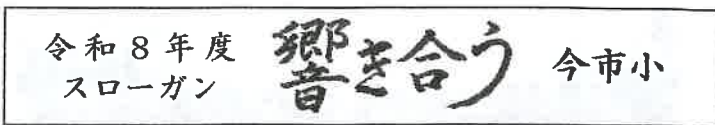 令和8年度
スローガン
響き合う
今市小